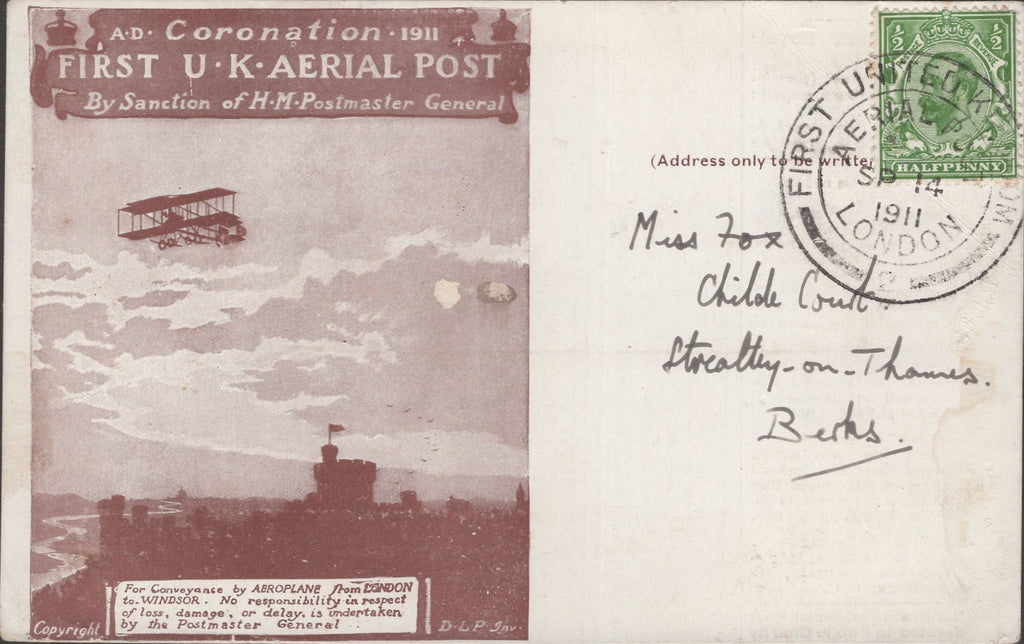 A·D· Coronation · 1911
FIRST U·K·AERIAL POST
By Sanction of H·M·Postmaster General
For Conveyance by AEROPLANE from LONDON
to WINDSOR. No responsibility in respect
of loss, damage, or delay, is undertaken
by the Postmaster General ..
Copyright
D-L-P Inv.
½ ½
REVENUE
HALFPENNY
FIRST UNITED KINGDOM
AERIAL POST
SP 14
1911
LONDON
2
(Address only to be written
Miss Fox
Childe Court.
Streatley-on-Thames.
Berks.